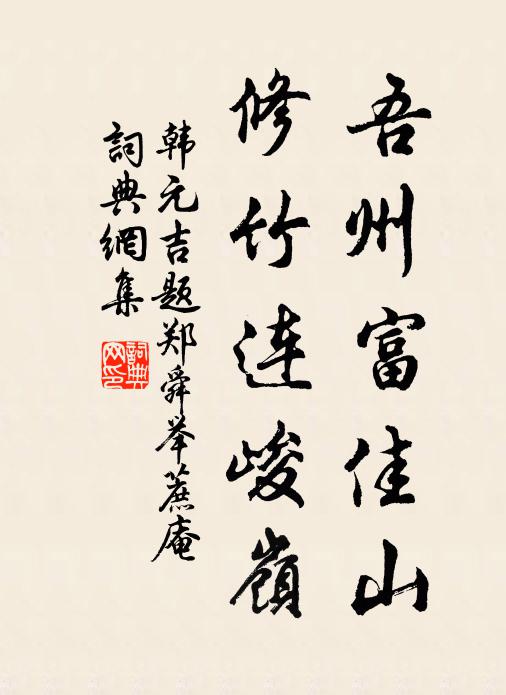 吾州富佳山
修竹连峻嶺
韩元吉题郑舜举蔗庵
詞典網集
詞典
网印